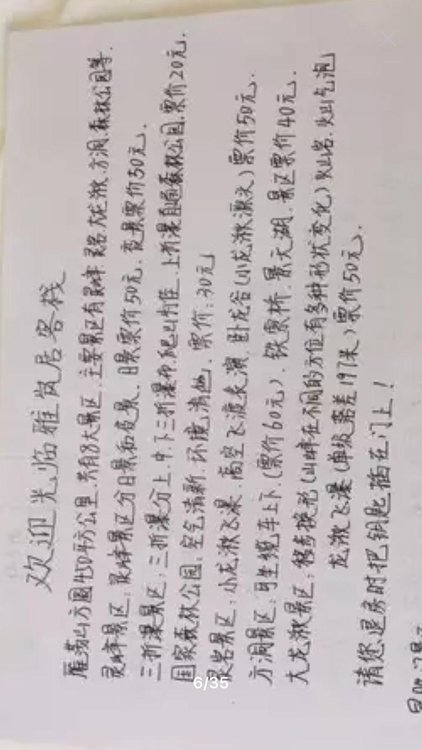 欢迎光临雅岚居客栈
雁荡山方圆450平方公里.共有8大景区.主要景区有灵峰.灵岩.大龙湫.方洞.森林公园等.
灵峰景区：灵峰景区分日景和夜景.日景票价50元.夜景票价50元.
三折瀑景区：三折瀑分上.中.下三折瀑布.爬山为佳.上折瀑直通森林公园.票价20元.
国家森林公园：空气清新.环境清幽.票价：30元
灵岩景区：小龙湫飞瀑.高空飞渡表演.卧龙谷(小龙湫源头)票价50元.
方洞景区：可坐缆车上下(票价60元).铁索桥.景天湖.景区票价40元.
大龙湫景区：移步换形(山峰在不同的方位有多种形状变化)火山岩.火山气泡
龙湫飞瀑(单级落差197米)票价50元.
请您退房时把钥匙插在门上！
6/35